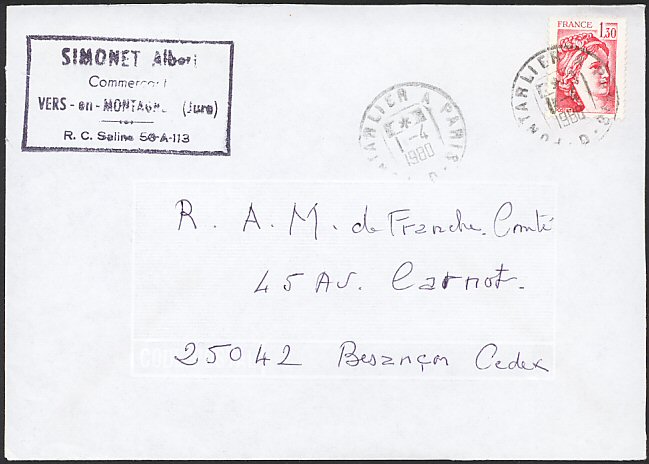 SIMONET Albert
Commerçant
VERS-en-MONTAGNE (Jura)
R. C. Saline 56-A-113
FRANCE
1,30
PONTARLIER A PARIS
1-4
1980
PONTARLIER
1-4
1980
R. A. M. de Franche.Comté
45 Av. Carnot.
25042 Besançon Cedex